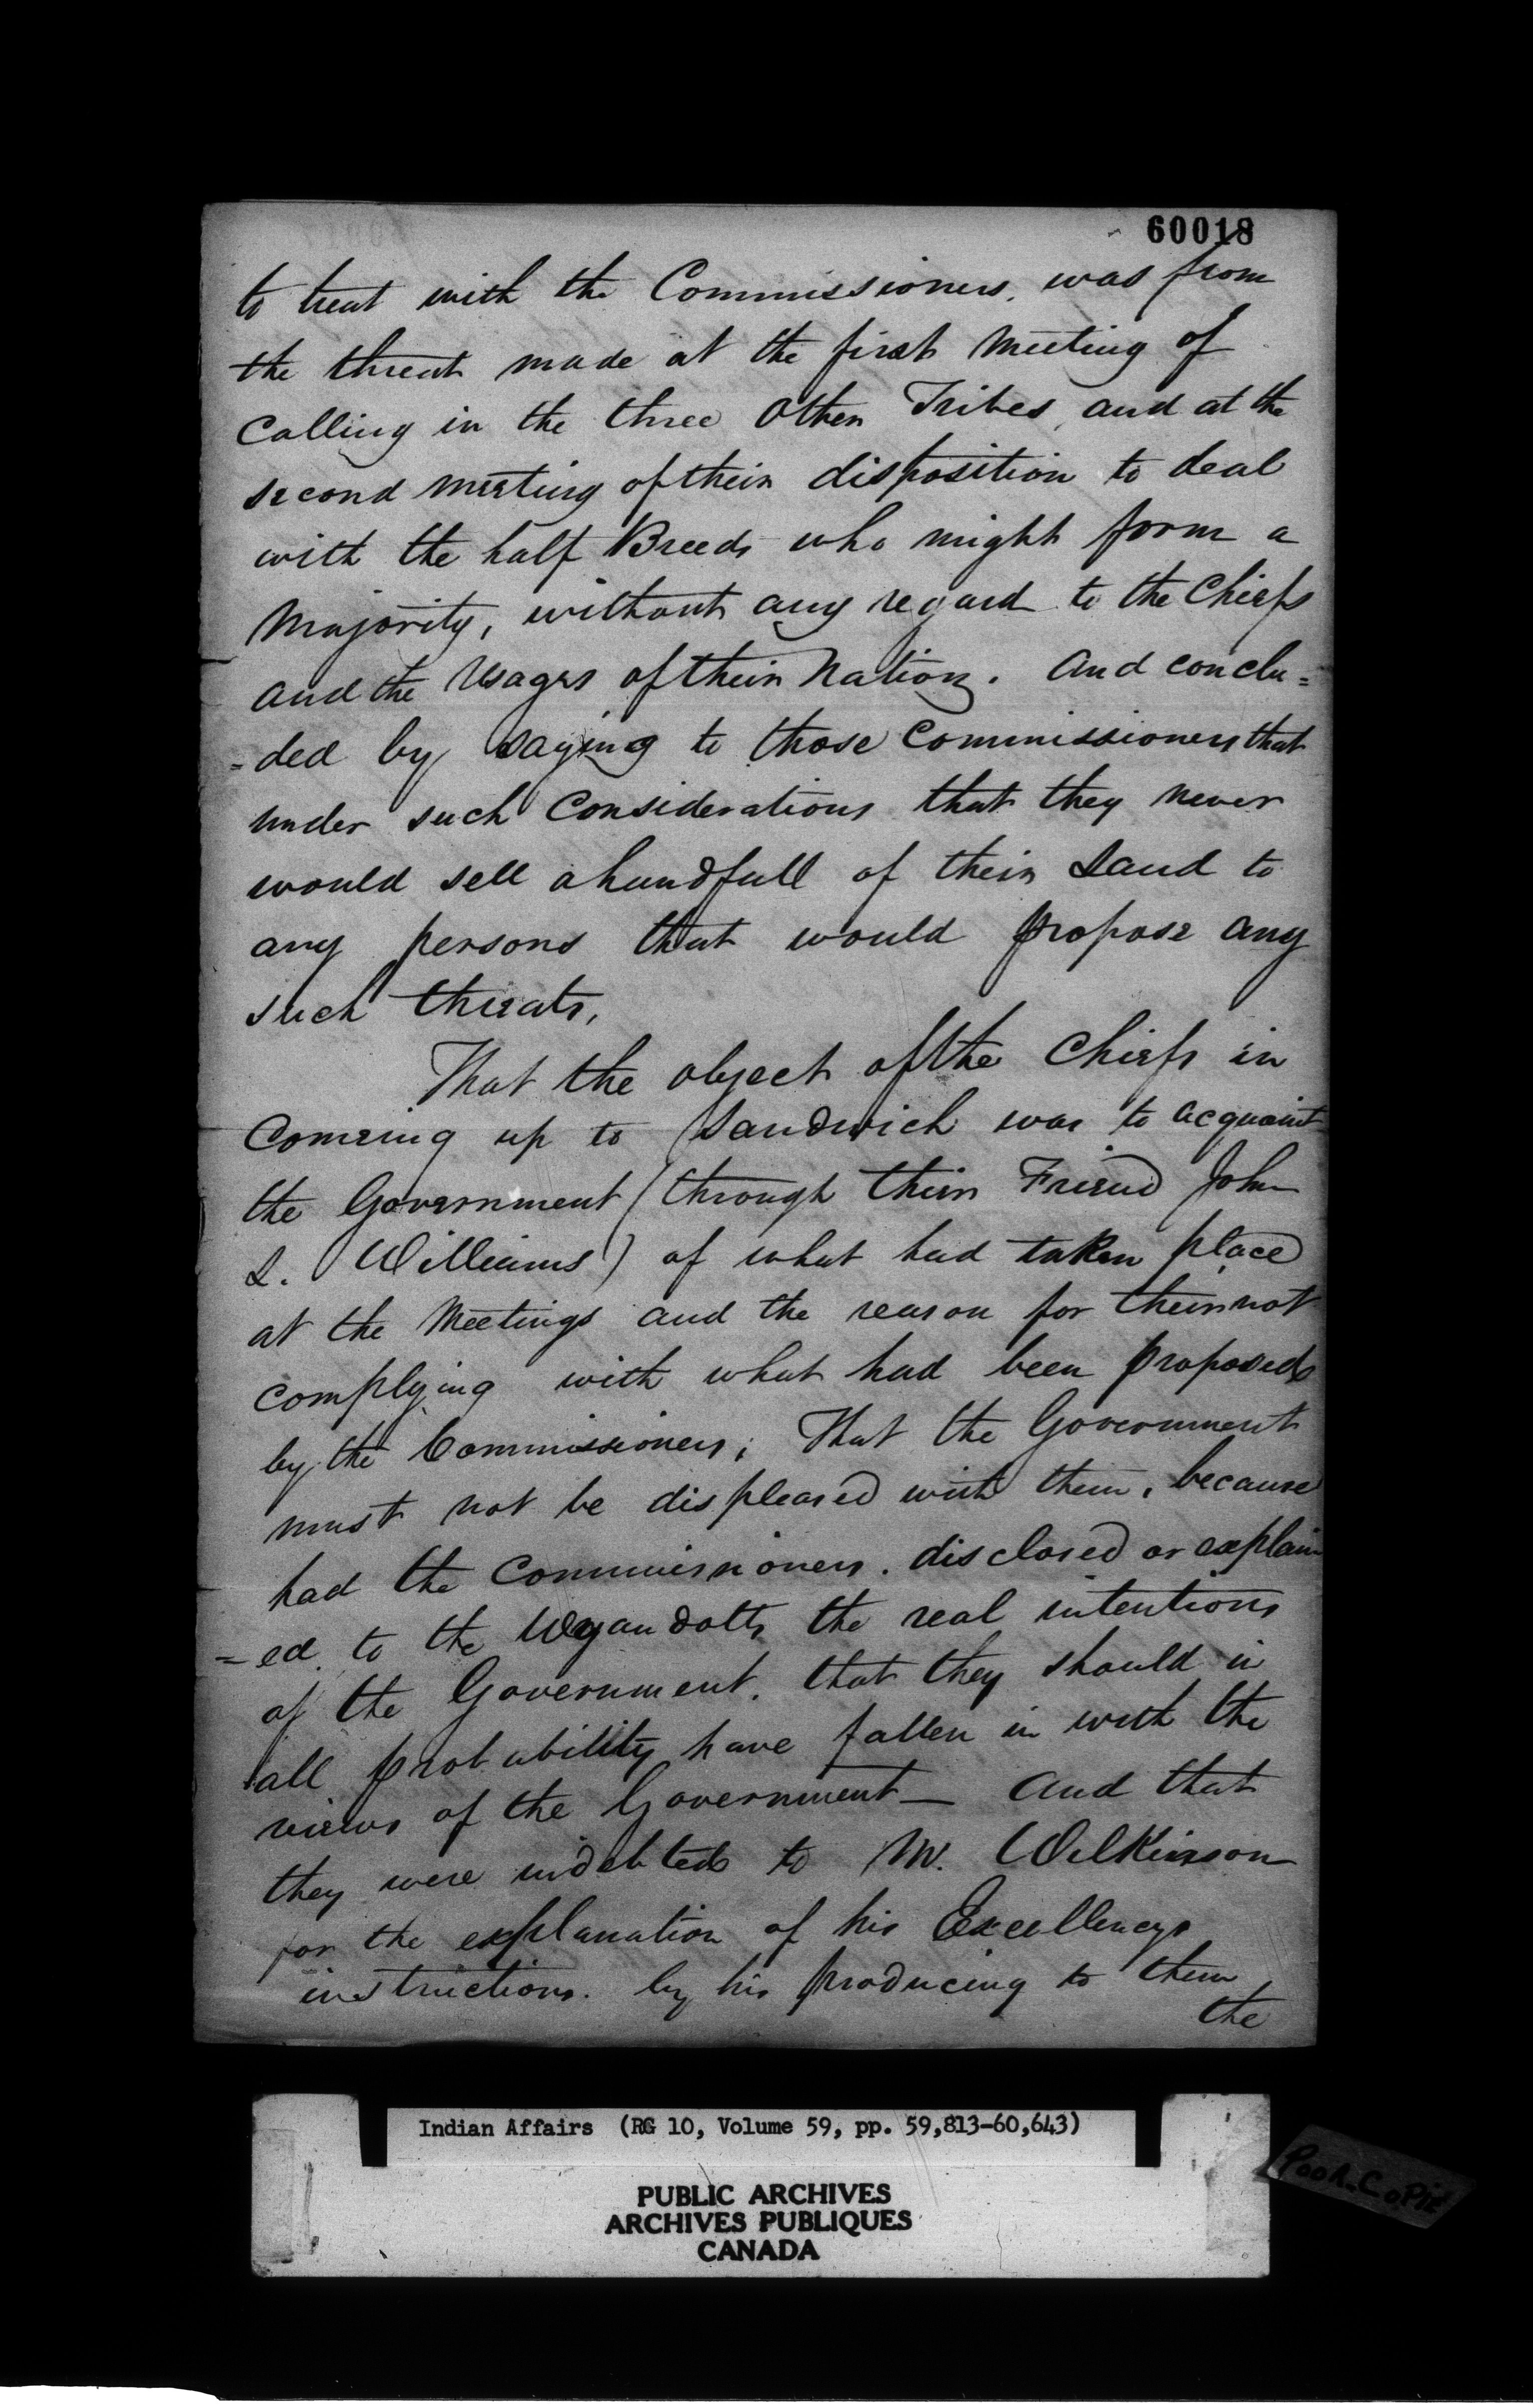 60018
to treat with the Commissioners, was from
the threat made at the first Meeting of
Calling in the three Other Tribes, and at the
second meeting of their disposition to deal
with the half Breeds who might form a
Majority, without any regard to the Chiefs
and the Usages of their Nation. And conclu=
=ded by saying to those Commissioners that
under such Considerations that they never
would sell a handfull of their Land to
any persons that would propose any
such threats,
That the object of the Chiefs in
Comeing up to Sandwich was to acquaint
the Government (through their Friend John
L. Williams) of what had taken place
at the Meetings and the reason for their not
complying with what had been proposed
by the Commissioners; That the Government
must not be displeased with them, because
had the Commissioners. disclosed or explain
=ed to the Wyandotts the real intentions
of the Government. that they should in
all probability have fallen in with the
views of the Government — and that
they were indebted to Mr. Wilkinson
for the explanation of his Excellencys
instructions. by his producing to them
the
Indian Affairs (RG 10, Volume 59, pp. 59,813-60,643)
PUBLIC ARCHIVES
ARCHIVES PUBLIQUES
CANADA
POOR COPIE